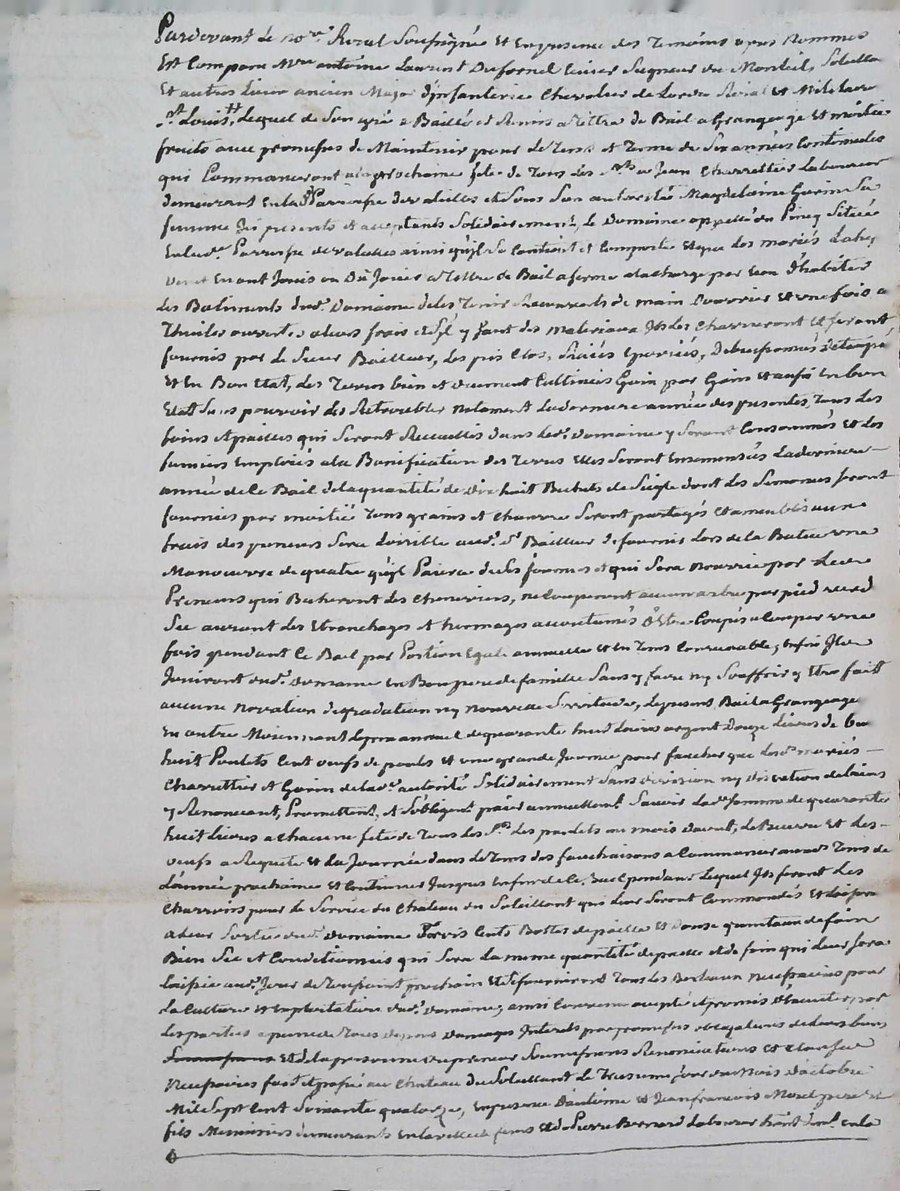 Pardevant Le no.re Royal Soussigné et En presence des Temoins apres Nommés
Est Comparu M.re antoine Laurent Dufornel Ecuier Seigneur du Monteil, Soleillant
Et autres Lieux ancien Major d'infanterie Chevalier de Lordre Roial et Militaire
St Louis, Lequel de Son gré a Baillé et Remis a Tiltre de Bail a Grangeage Et moitié
fruits avec promesses de Maintenir pour Le Tems et Terme de Six années Continuelles
qui Commanceront a la prochaine fete de Tous Les S.ts a Jean Charrettier Laboureur
demeurant En la Parroisse de valeilles et Sous Son authorité Magdelaine Gorin Sa
femme Ici presents et acceptants Solidairement, Le Domaine appellé du Pineg Situé
En lad. Parroisse de valeilles ainsi qu'il Se Contient et Comporte Et que Les mariés
En ont Jouis ou Dû Jouir a Tiltre de Bail a ferme a la charge par Eux D'habiter
Les Batiments dud. Domaine de les Tenir de main Douvrier et une fois a
Thuiles ouvertes a leurs frais et S'il y faut des materiaux Ils Les Charrieront Et Seront
fournis par Le Sieur Bailleur, Les prés Clos,
Et En Bon Etat, des Terres bien et duement Cultivées Gain par Gain et aussi En bon
Etat Sans pouvoir les Retroubler Notament La derniere année des presentes, Tous Les
foins et pailles qui Seront Recueillis dans Led. Domaine y Seront Consommés et Les
fumiers Emploiés a la Bonification des Terres Elles Seront Ensemensées La derniere
année de Ce Bail de la quantité de dix huit Bichets de Seigle dont Les Semences Seront
fournies par moitié Tous grains et Chanvre Seront partagés
frais des preneurs Sera Loisible aud. S.r Bailleur de fournir Lors de la Bature une
Manoeuvre de quatre qu'il Paiera de Ses formes et qui Sera nourrie par Les
Preneurs qui Bicheront Les Cheneviers, ne Couperont aucun arbre par pied verd
Sec auront Les Etronchages et hermages accoutumés Estre Coupés a Couper une
fois pendant Ce Bail par Portion Egale annuelle et En Tems Convenable, Enfin Ils
Jouiront dud. Domaine En Bon pere de famille Sans y faire ny Souffrir y Etre fait
aucune Novation degradation ny Nouvelle Servitude, Le present Bail a Grangeage
En outre Moiennant Le prix annuel de quarante huit Livres argent Douze Livres de
huit Poulets Cent oeufs de poule et une grande Journée pour faucher que Lesd. mariés
Charrettier et Gorin de lad. autorité Solidairement Sans division ny discution de biens
y Renonceant, Promettent, et S'obligent paier annuellem.t Savoir Lad. Somme de quarante
huit Livres a Chacune fete de Tous les S.ts Les poulets au mois Daout, Le Beurre Et Les
oeufs a Requete Et La Journée dans Le Tems des fauchaisons a Commancer au Tems de
L'année prochaine et Continuer Jusques En fin de Ce Bail pendant Lequel Ils feront Les
Charrois pour Le Service du Château du Soleillant qui Leur Seront Commandés
a Leur Sortie dud. Domaine Trois Cents Bottes de paille et Douze quintaux de foin
Bien Sec et Conditionnés qui Sera La meme quantité de paille et de foin qui Leur Sera
Laissée aud. Jour de Toussaint prochain Et Se fourniront Tous Les Bestiaux Necessaires pour
La Culture et Exploitation dud. Domaine, ainsi Convenu accepté et promis d'Executer par
Les parties a peine de Tous Depens Domages Interets par promesses obligations de leurs biens
Et de la personne du preneur Soumissions Renonciations et Clauses
Necessaires fait et passé au Chateau du Soleillant Le Treizieme Jour du Mois Doctobre
Mil Sept Cent Soixante quatorze, En presence D'antoine et Jean francois Morel pere et
fils Menuisiers demeurants En la ville de feurs et de Pierre Bernard Laboureur En la